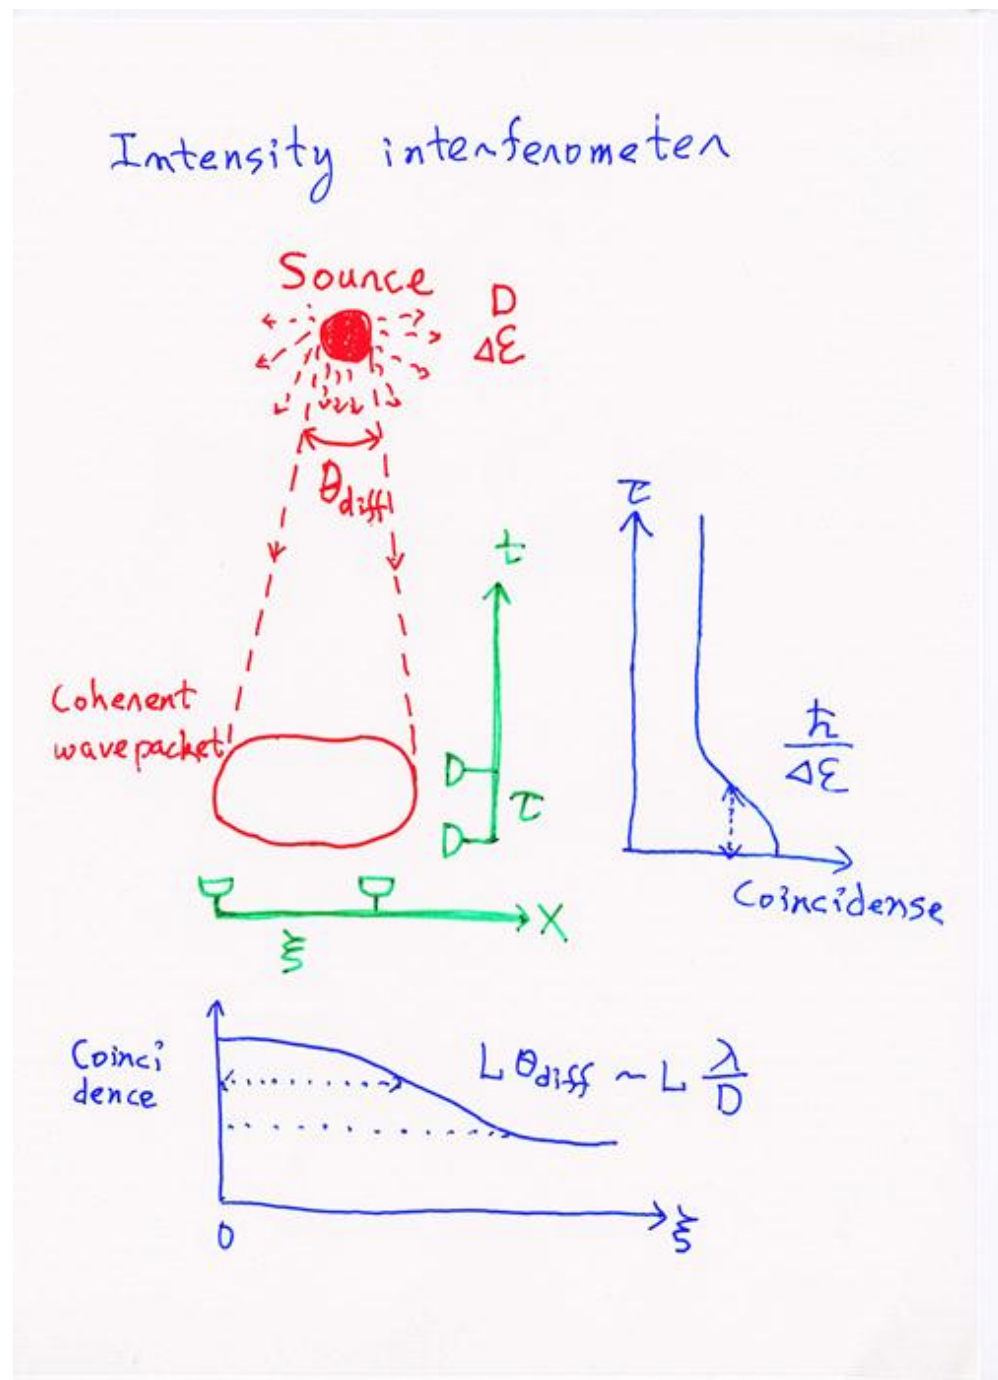 Intensity interferometer
Source
D
Δε
θdiff
τ
t
Coherent
wave packet
ħ
Δε
τ
Coincidense
X
ξ
Coinci
dence
Lθdiff ~ L λ/D
0
ξ